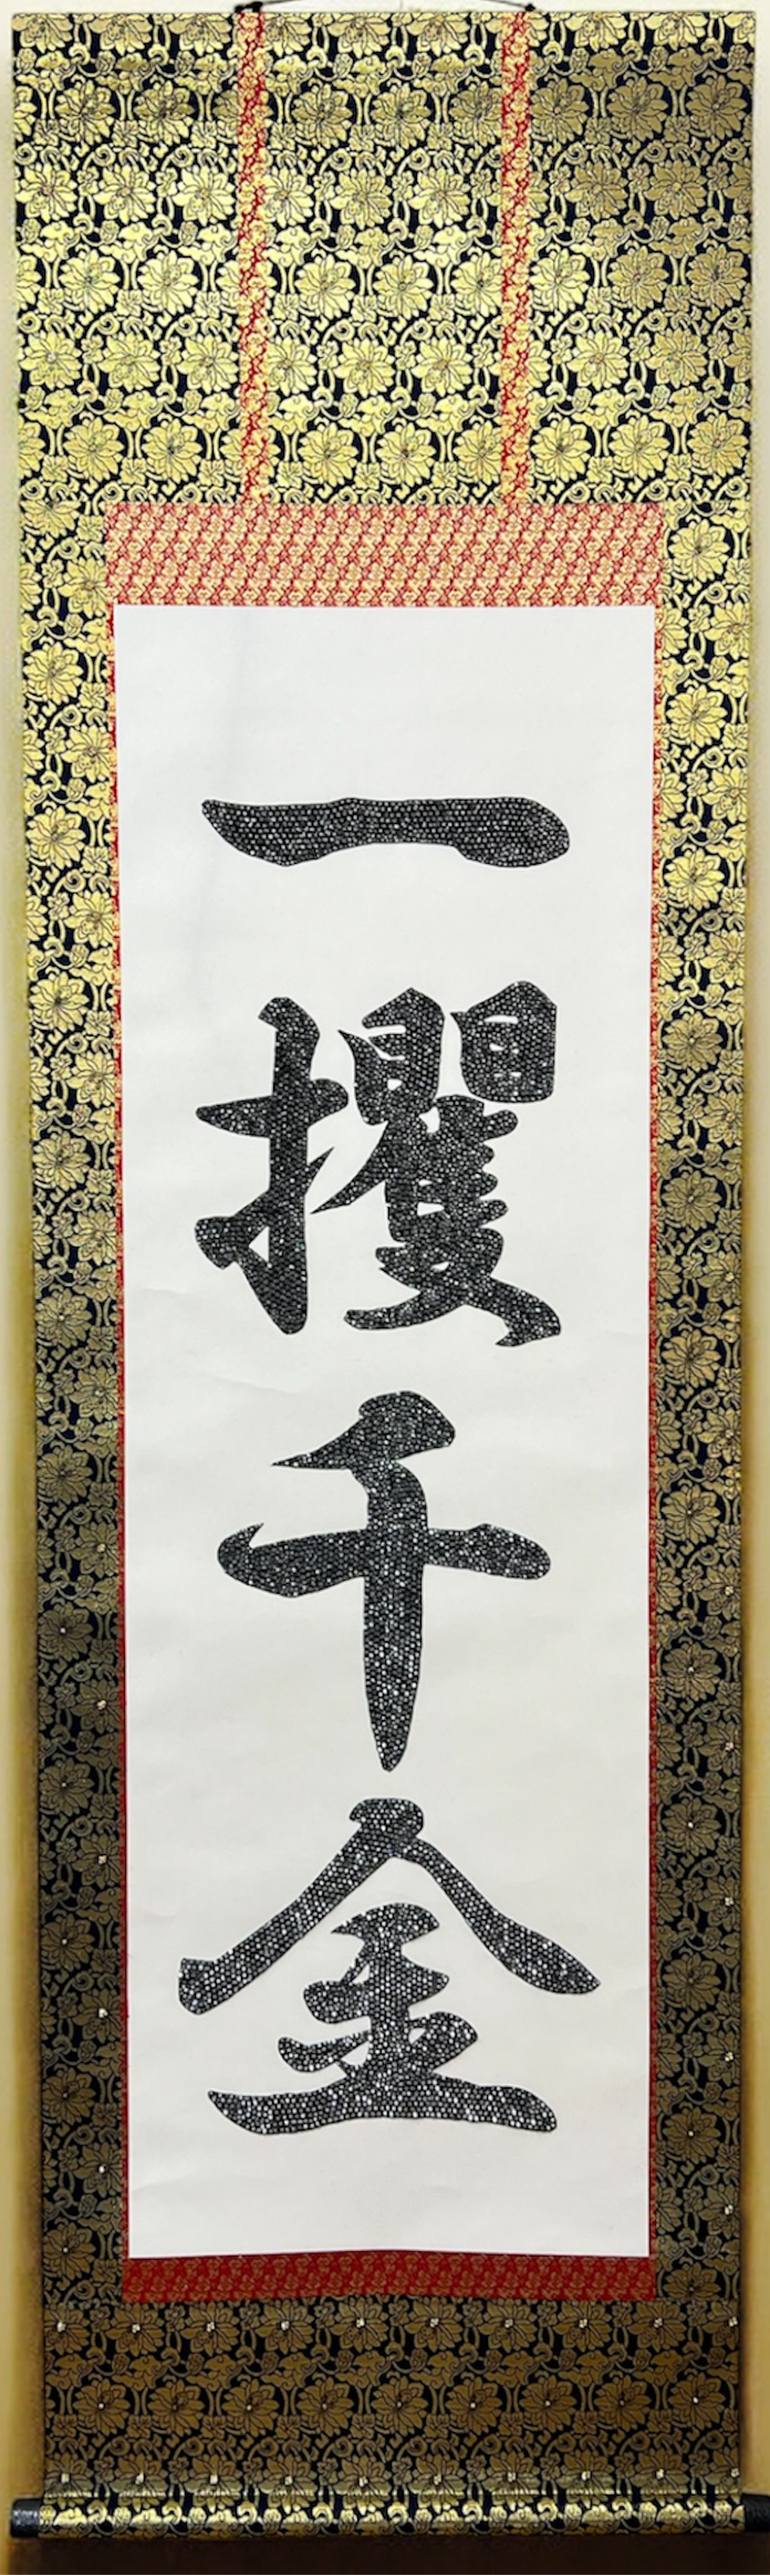 一攫千金